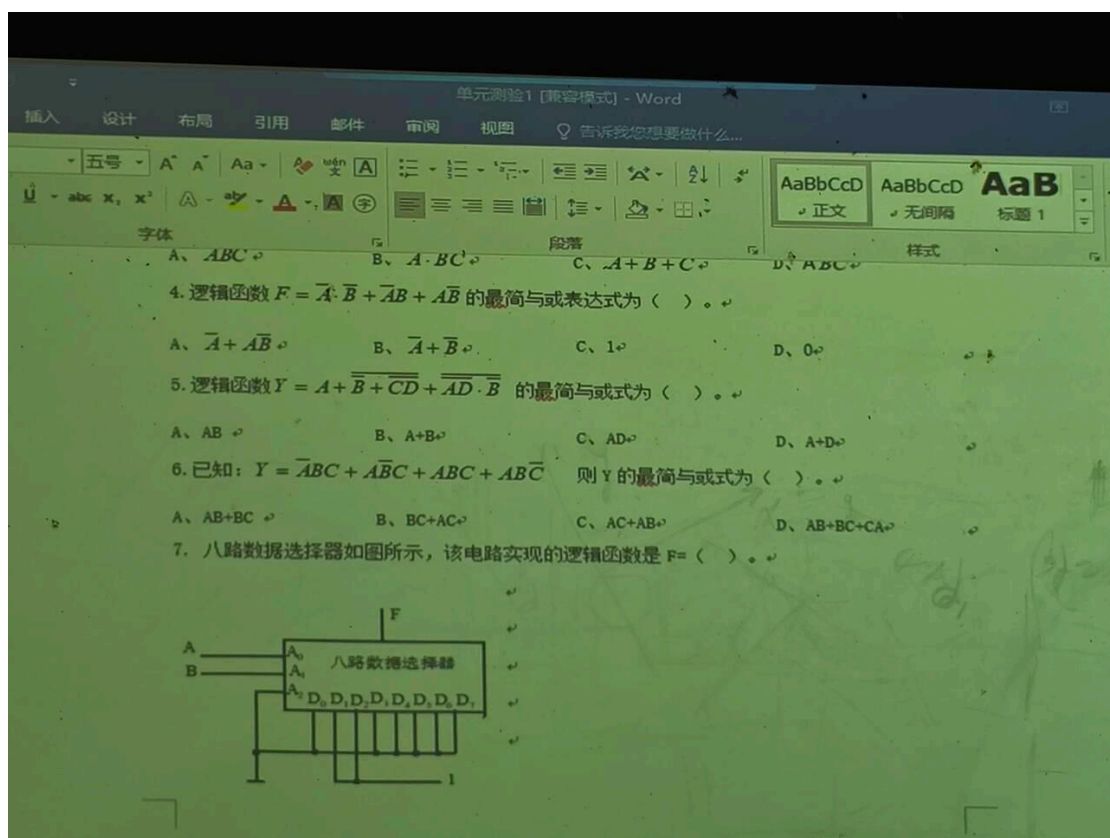 单元测验1 [兼容模式] - Word
插入 设计 布局 引用 邮件 审阅 视图 告诉我您想要做什么...
五号 A A Aa wén 文 A AaBbCcD AaBbCcD AaB
U abc x₂ x² A aby A A 字 正文 无间隔 标题 1
字体 段落 样式
A、 ABC B、 A·BC C、 A+B+C D、 ABC
4. 逻辑函数 F = A̅·B̅ + A̅B + AB̅ 的最简与或表达式为（ ）。
A、 A̅ + AB̅ B、 A̅ + B̅ C、 1 D、 0
5. 逻辑函数 Y = A + \overline{\overline{B} + \overline{CD}} + \overline{\overline{AD} · \overline{B}} 的最简与或式为（ ）。
A、 AB B、 A+B C、 AD D、 A+D
6. 已知： Y = A̅BC + AB̅C + ABC + ABC̅ 则 Y 的最简与或式为（ ）。
A、 AB+BC B、 BC+AC C、 AC+AB D、 AB+BC+CA
7. 八路数据选择器如图所示，该电路实现的逻辑函数是 F=（ ）。
F
A A₀ 八路数据选择器
B A₁
A₂ D₀ D₁ D₂ D₃ D₄ D₅ D₆ D₇
1